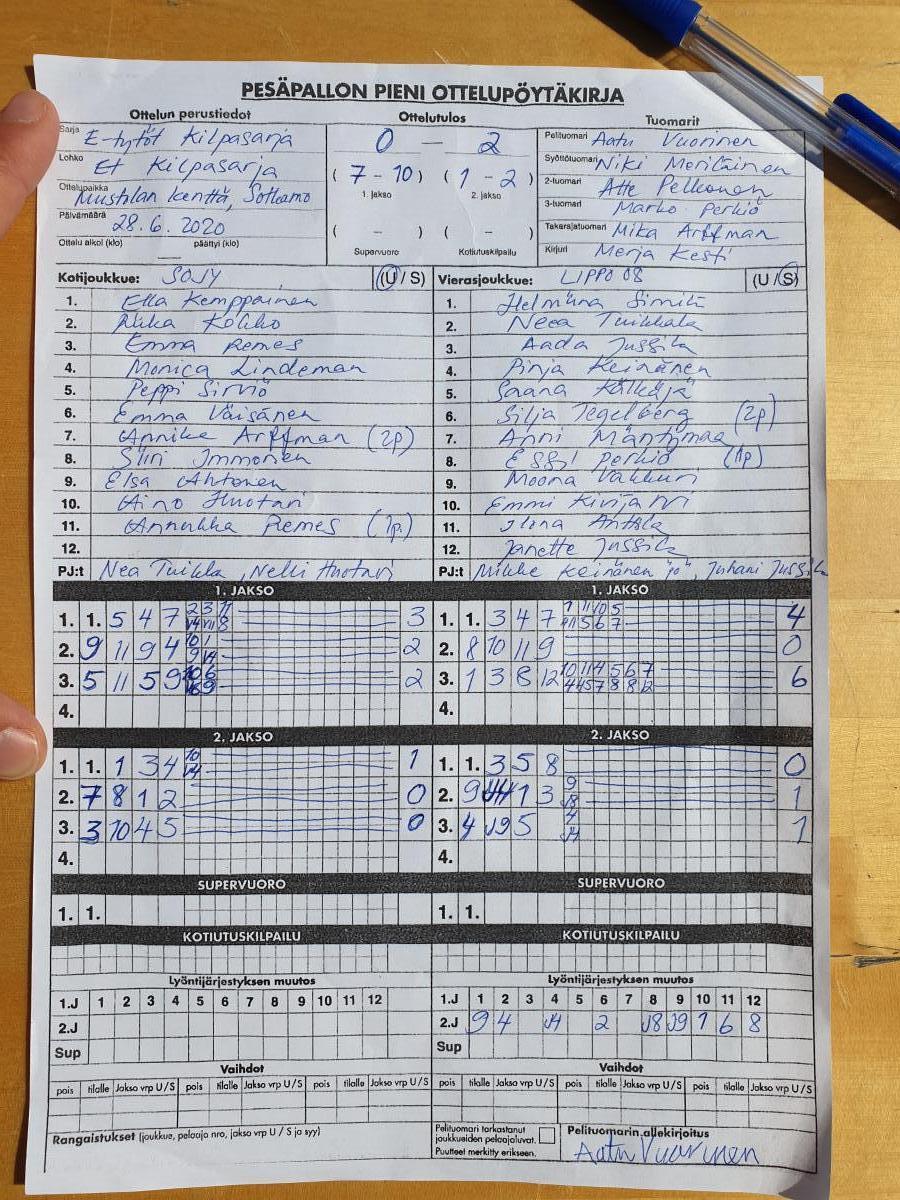 PESÄPALLON PIENI OTTELUPÖYTÄKIRJA
Ottelun perustiedot Ottelutulos Tuomarit
Sarja E-tytöt Kilpasarja 0 – 2 Pelituomari Aatu Vuorinen
Lohko Et Kilpasarja (7 - 10) (1 - 2) Syöttötuomari Niki Meriläinen
Ottelupaikka Mustilan kenttä, Sotkamo 1. jakso 2. jakso 2-tuomari Atte Pelkonen
Päivämäärä 28.6.2020 3-tuomari Marko Perkiö
Ottelu alkoi (klo) — päättyi (klo) ( - ) ( - ) Takarajatuomari Mika Arffman
Supervuoro Kotiutuskilpailu Kirjuri Merja Kesti
Kotijoukkue: SOJY (U / S) Vierasjoukkue: LIPPO 08 (U / S)
1. Ella Kemppainen 1. Simila
2. Kokko 2. Neea Tuikkala
3. Emma Remes 3. Aada Jussila
4. Monica Lindeman 4. Pinja Keinänen
5. Peppi Sirviö 5. Saana Kälkäjä
6. Emma Väisänen 6. Silja Tegelberg (2p)
7. Annika Arffman (2p) 7. Anni Mäntymaa
8. Siiri Immonen 8. Essi Perkiö (1p)
9. Elsa Ahtonen 9. Moona Vakkuri
10. Aino Huotari 10. Emmi Kivijärvi
11. Annukka Remes (1p.) 11. Ilona Anttila
12. 12. Janette Jussila
PJ:t Nea Tuikka, Nelli Huotari PJ:t Mikke Keinänen "jo", Juhani Jussila
1. JAKSO 1. JAKSO
1. 1. 5 4 7 3 1. 1. 3 4 7 4
2. 9 11 9 4 2 2. 8 10 11 9 0
3. 5 11 5 9 2 3. 1 3 8 12 6
4. 4.
2. JAKSO 2. JAKSO
1. 1. 1 3 4 1 1. 1. 3 5 8 0
2. 7 8 1 2 0 2. 9 1 3 1
3. 3 10 4 5 0 3. 4 J9 5 1
4. 4.
SUPERVUORO SUPERVUORO
1. 1. 1. 1.
KOTIUTUSKILPAILU KOTIUTUSKILPAILU
Lyöntijärjestyksen muutos Lyöntijärjestyksen muutos
1.J 1 2 3 4 5 6 7 8 9 10 11 12 1.J 1 2 3 4 5 6 7 8 9 10 11 12
2.J 2.J 9 4 J4 2 J8 J9 1 6 8
Sup Sup
Vaihdot Vaihdot
pois tilalle Jakso vrp U / S pois tilalle Jakso vrp U / S pois tilalle Jakso vrp U / S pois tilalle Jakso vrp U / S pois tilalle Jakso vrp U / S pois tilalle Jakso vrp U / S
Rangaistukset (joukkue, pelaaja nro, jakso vrp U / S ja syy)
Pelituomari tarkastanut joukkueiden pelaajaluvat.
Puutteet merkitty erikseen.
Pelituomarin allekirjoitus
Aatu Vuorinen